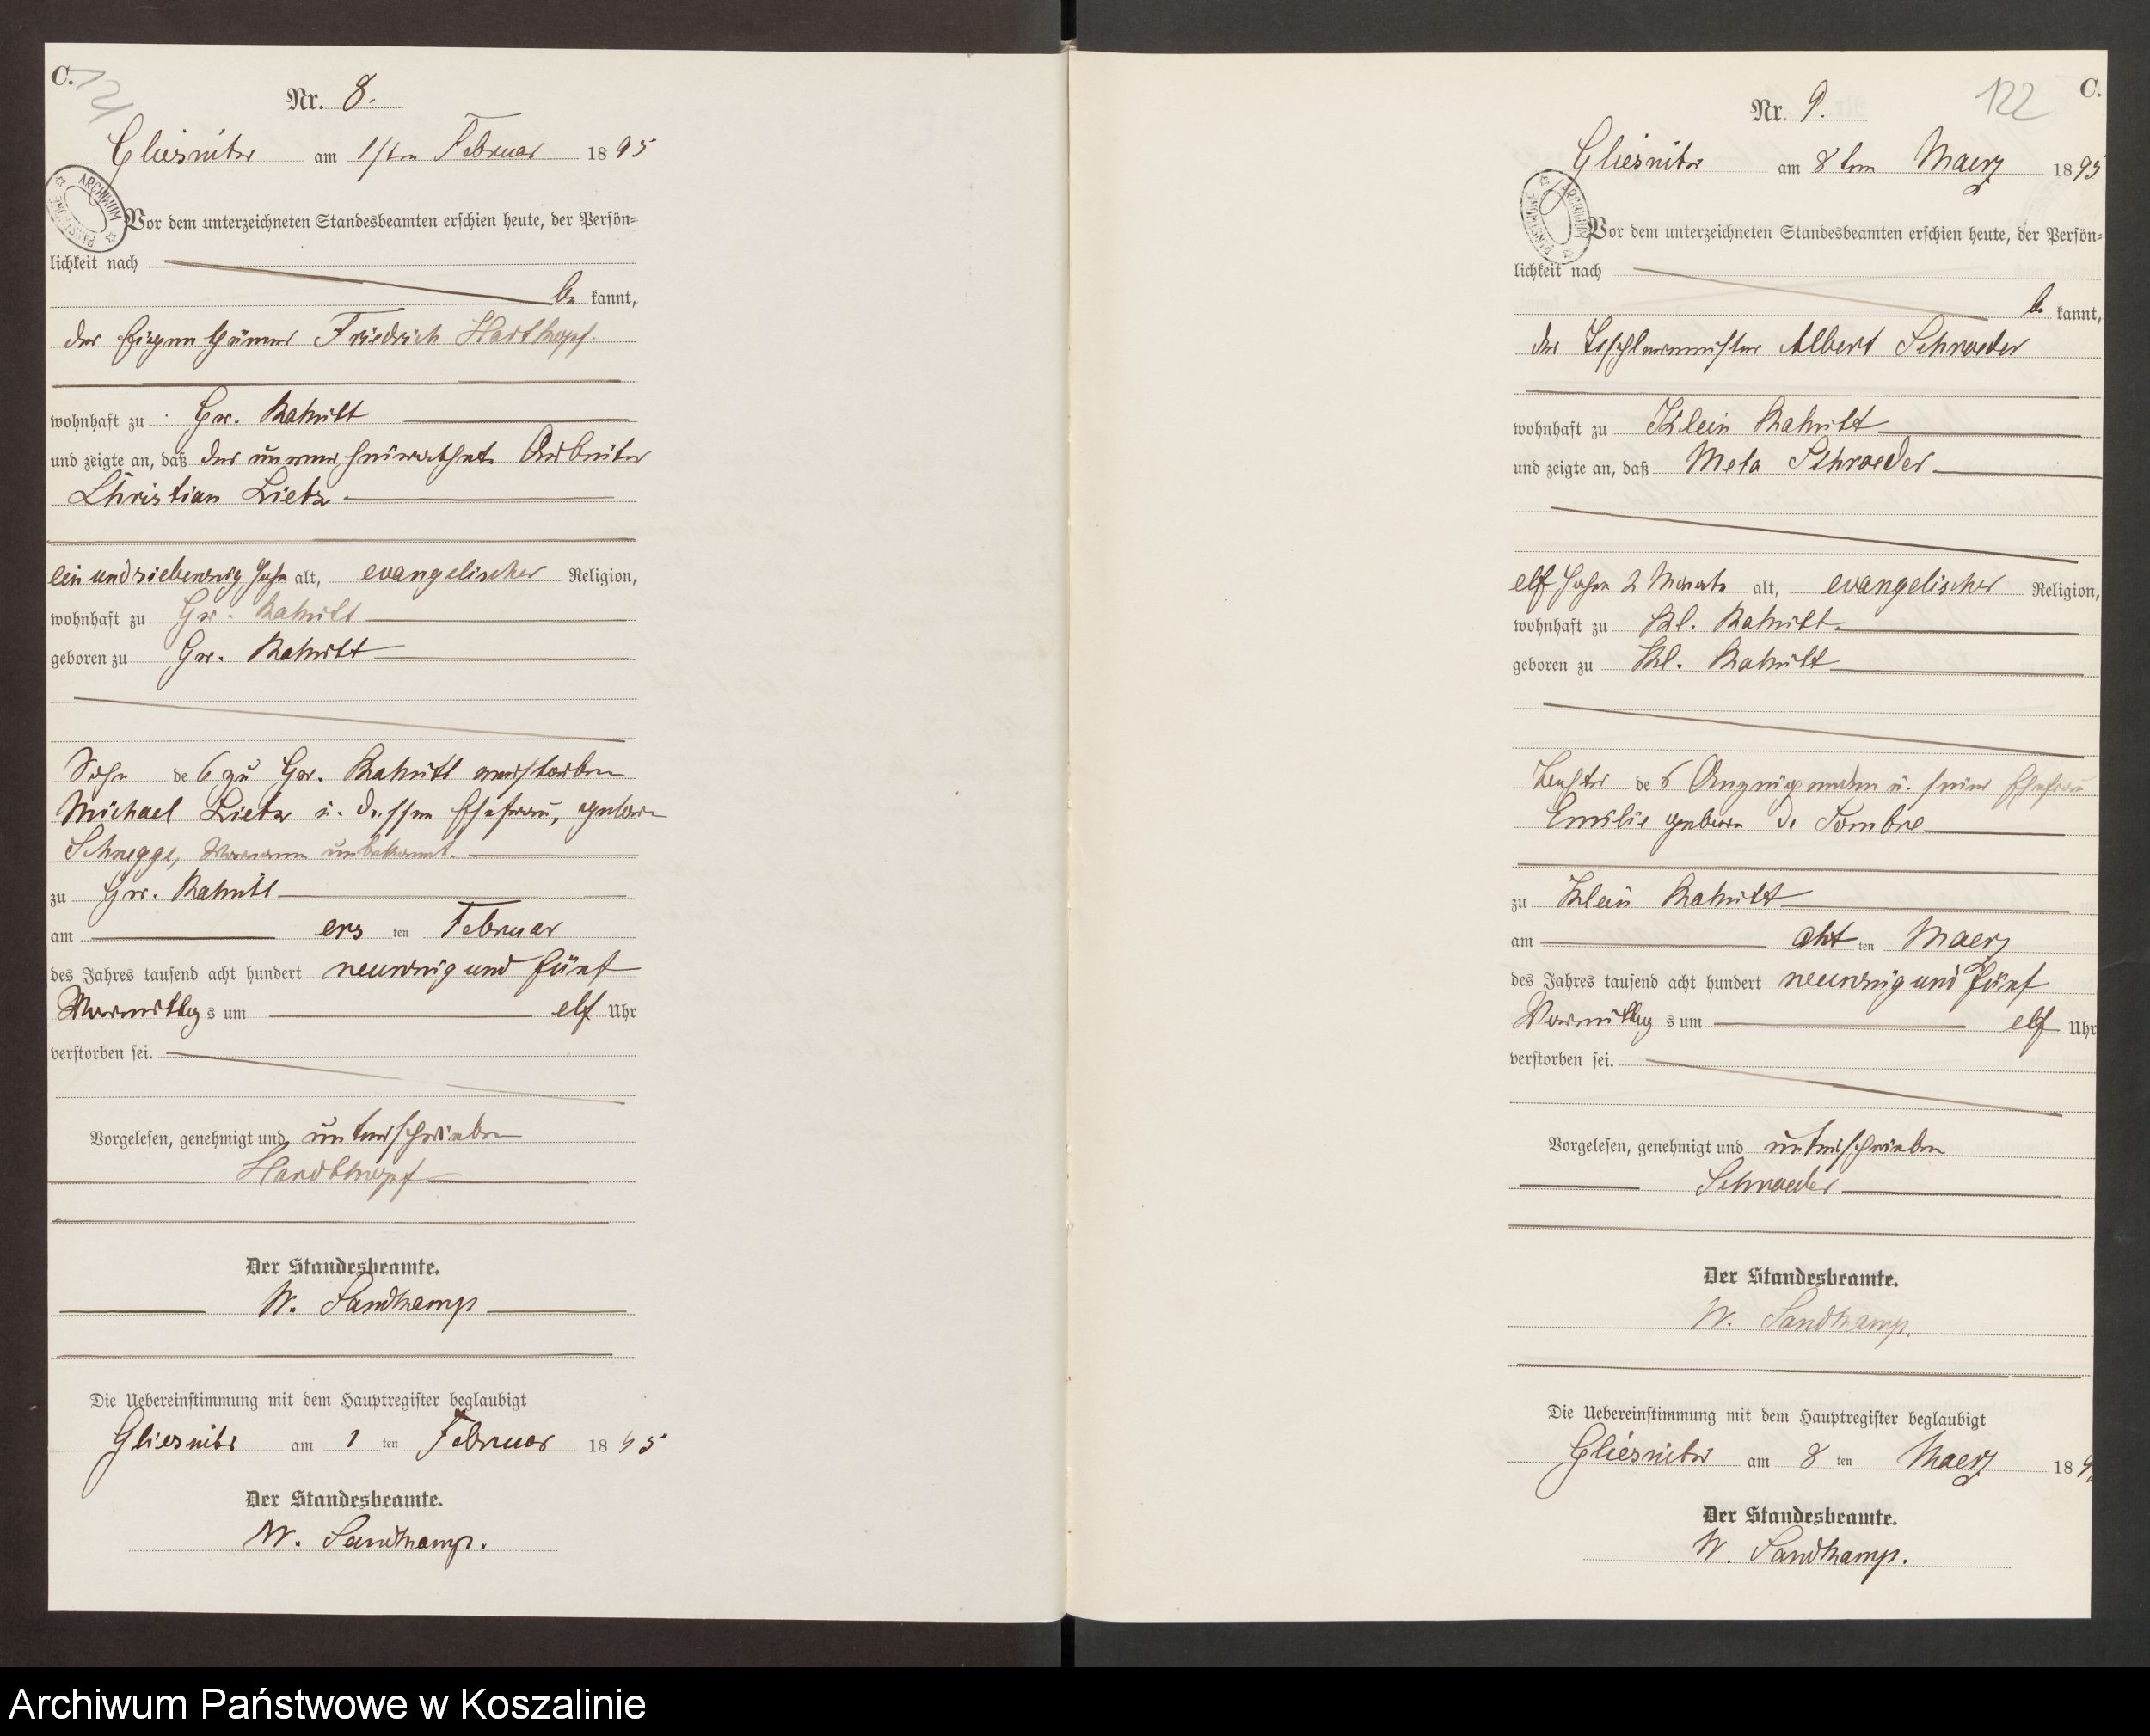 C.
121
Nr. 8.
Gliesnitz am 1sten Februar 1895
ARCHIWUM PAŃSTWOWE
Vor dem unterzeichneten Standesbeamten erschien heute, der Persön-
lichkeit nach
be kannt,
der Eigenthümer Friedrich Hardthopf.
wohnhaft zu Gr. Rakitt
und zeigte an, daß der unverheirathete Arbeiter
Christian Lietz
ein und siebenzig Jahr alt, evangelischer Religion,
wohnhaft zu Gr. Rakitt
geboren zu Gr. Rakitt
Sohn des zu Gr. Rakitt verstorbenen
Michael Lietz u. dessen Ehefrau, geborn
Schnegge, Vorname unbekannt.
zu Gr. Rakitt
am ers ten Februar
des Jahres tausend acht hundert neunzig und fünf
Vormittags um elf Uhr
verstorben sei.
Vorgelesen, genehmigt und unterschrieben
Hardthopf
Der Standesbeamte.
W. Sandkamp
Die Uebereinstimmung mit dem Hauptregister beglaubigt
Gliesnitz am 1 ten Februar 1895
Der Standesbeamte.
W. Sandkamp.
122
C.
Nr. 9.
Gliesnitz am 8ten Maerz 1895
ARCHIWUM PAŃSTWOWE
Vor dem unterzeichneten Standesbeamten erschien heute, der Persön-
lichkeit nach
be kannt,
der Tischlermeister Albert Schroeder
wohnhaft zu Klein Rakitt
und zeigte an, daß Meta Schroeder
elf Jahre 2 Monate alt, evangelischer Religion,
wohnhaft zu Kl. Rakitt
geboren zu Kl. Rakitt
Tochter des Anzeigenden u. seiner Ehefrau
Emilie geborn de Sombre
zu Klein Rakitt
am acht ten Maerz
des Jahres tausend acht hundert neunzig und fünf
Vormittags um elf Uhr
verstorben sei.
Vorgelesen, genehmigt und unterschrieben
Schroeder
Der Standesbeamte.
W. Sandkamp.
Die Uebereinstimmung mit dem Hauptregister beglaubigt
Gliesnitz am 8 ten Maerz 189
Der Standesbeamte.
W. Sandkamp.
Archiwum Państwowe w Koszalinie